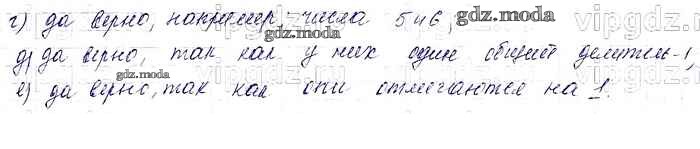 г) да верно, например, числа 5 и 6,
д) да верно, так как у них один общий делитель - 1,
е) да верно, так как они отличаются на 1.
gdz.moda
gdz.moda
gdz.moda
gdz.moda
vipgdz.v
vipgdz.v